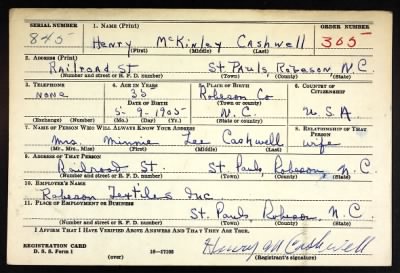 SERIAL NUMBER 1. NAME (Print) ORDER NUMBER
845 Henry McKinley Cashwell 305
(First) (Middle) (Last)
2. ADDRESS (Print)
Railroad St St Pauls Robeson N.C.
(Number and street or R. F. D. number) (Town) (County) (State)
3. TELEPHONE 4. AGE IN YEARS 5. PLACE OF BIRTH 6. COUNTRY OF CITIZENSHIP
none 35 Robeson Co
DATE OF BIRTH (Town or county)
5-9-1905 N.C. U S A
(Exchange) (Number) (Mo.) (Day) (Yr.) (State or country)
7. NAME OF PERSON WHO WILL ALWAYS KNOW YOUR ADDRESS 8. RELATIONSHIP OF THAT PERSON
Mrs. Minnie Lee Cashwell wife
(Mr., Mrs., Miss) (First) (Middle) (Last)
9. ADDRESS OF THAT PERSON
Railroad St. St Pauls, Robeson, N.C.
(Number and street or R. F. D. number) (Town) (County) (State)
10. EMPLOYER'S NAME
Robeson Textiles Inc.
11. PLACE OF EMPLOYMENT OR BUSINESS
St. Pauls, Robeson, N.C.
(Number and street or R. F. D. number) (Town) (County) (State)
I AFFIRM THAT I HAVE VERIFIED ABOVE ANSWERS AND THAT THEY ARE TRUE.
REGISTRATION CARD
D. S. S. Form 1 (over) 16-17105 (Registrant's signature)
Henry M Cashwell